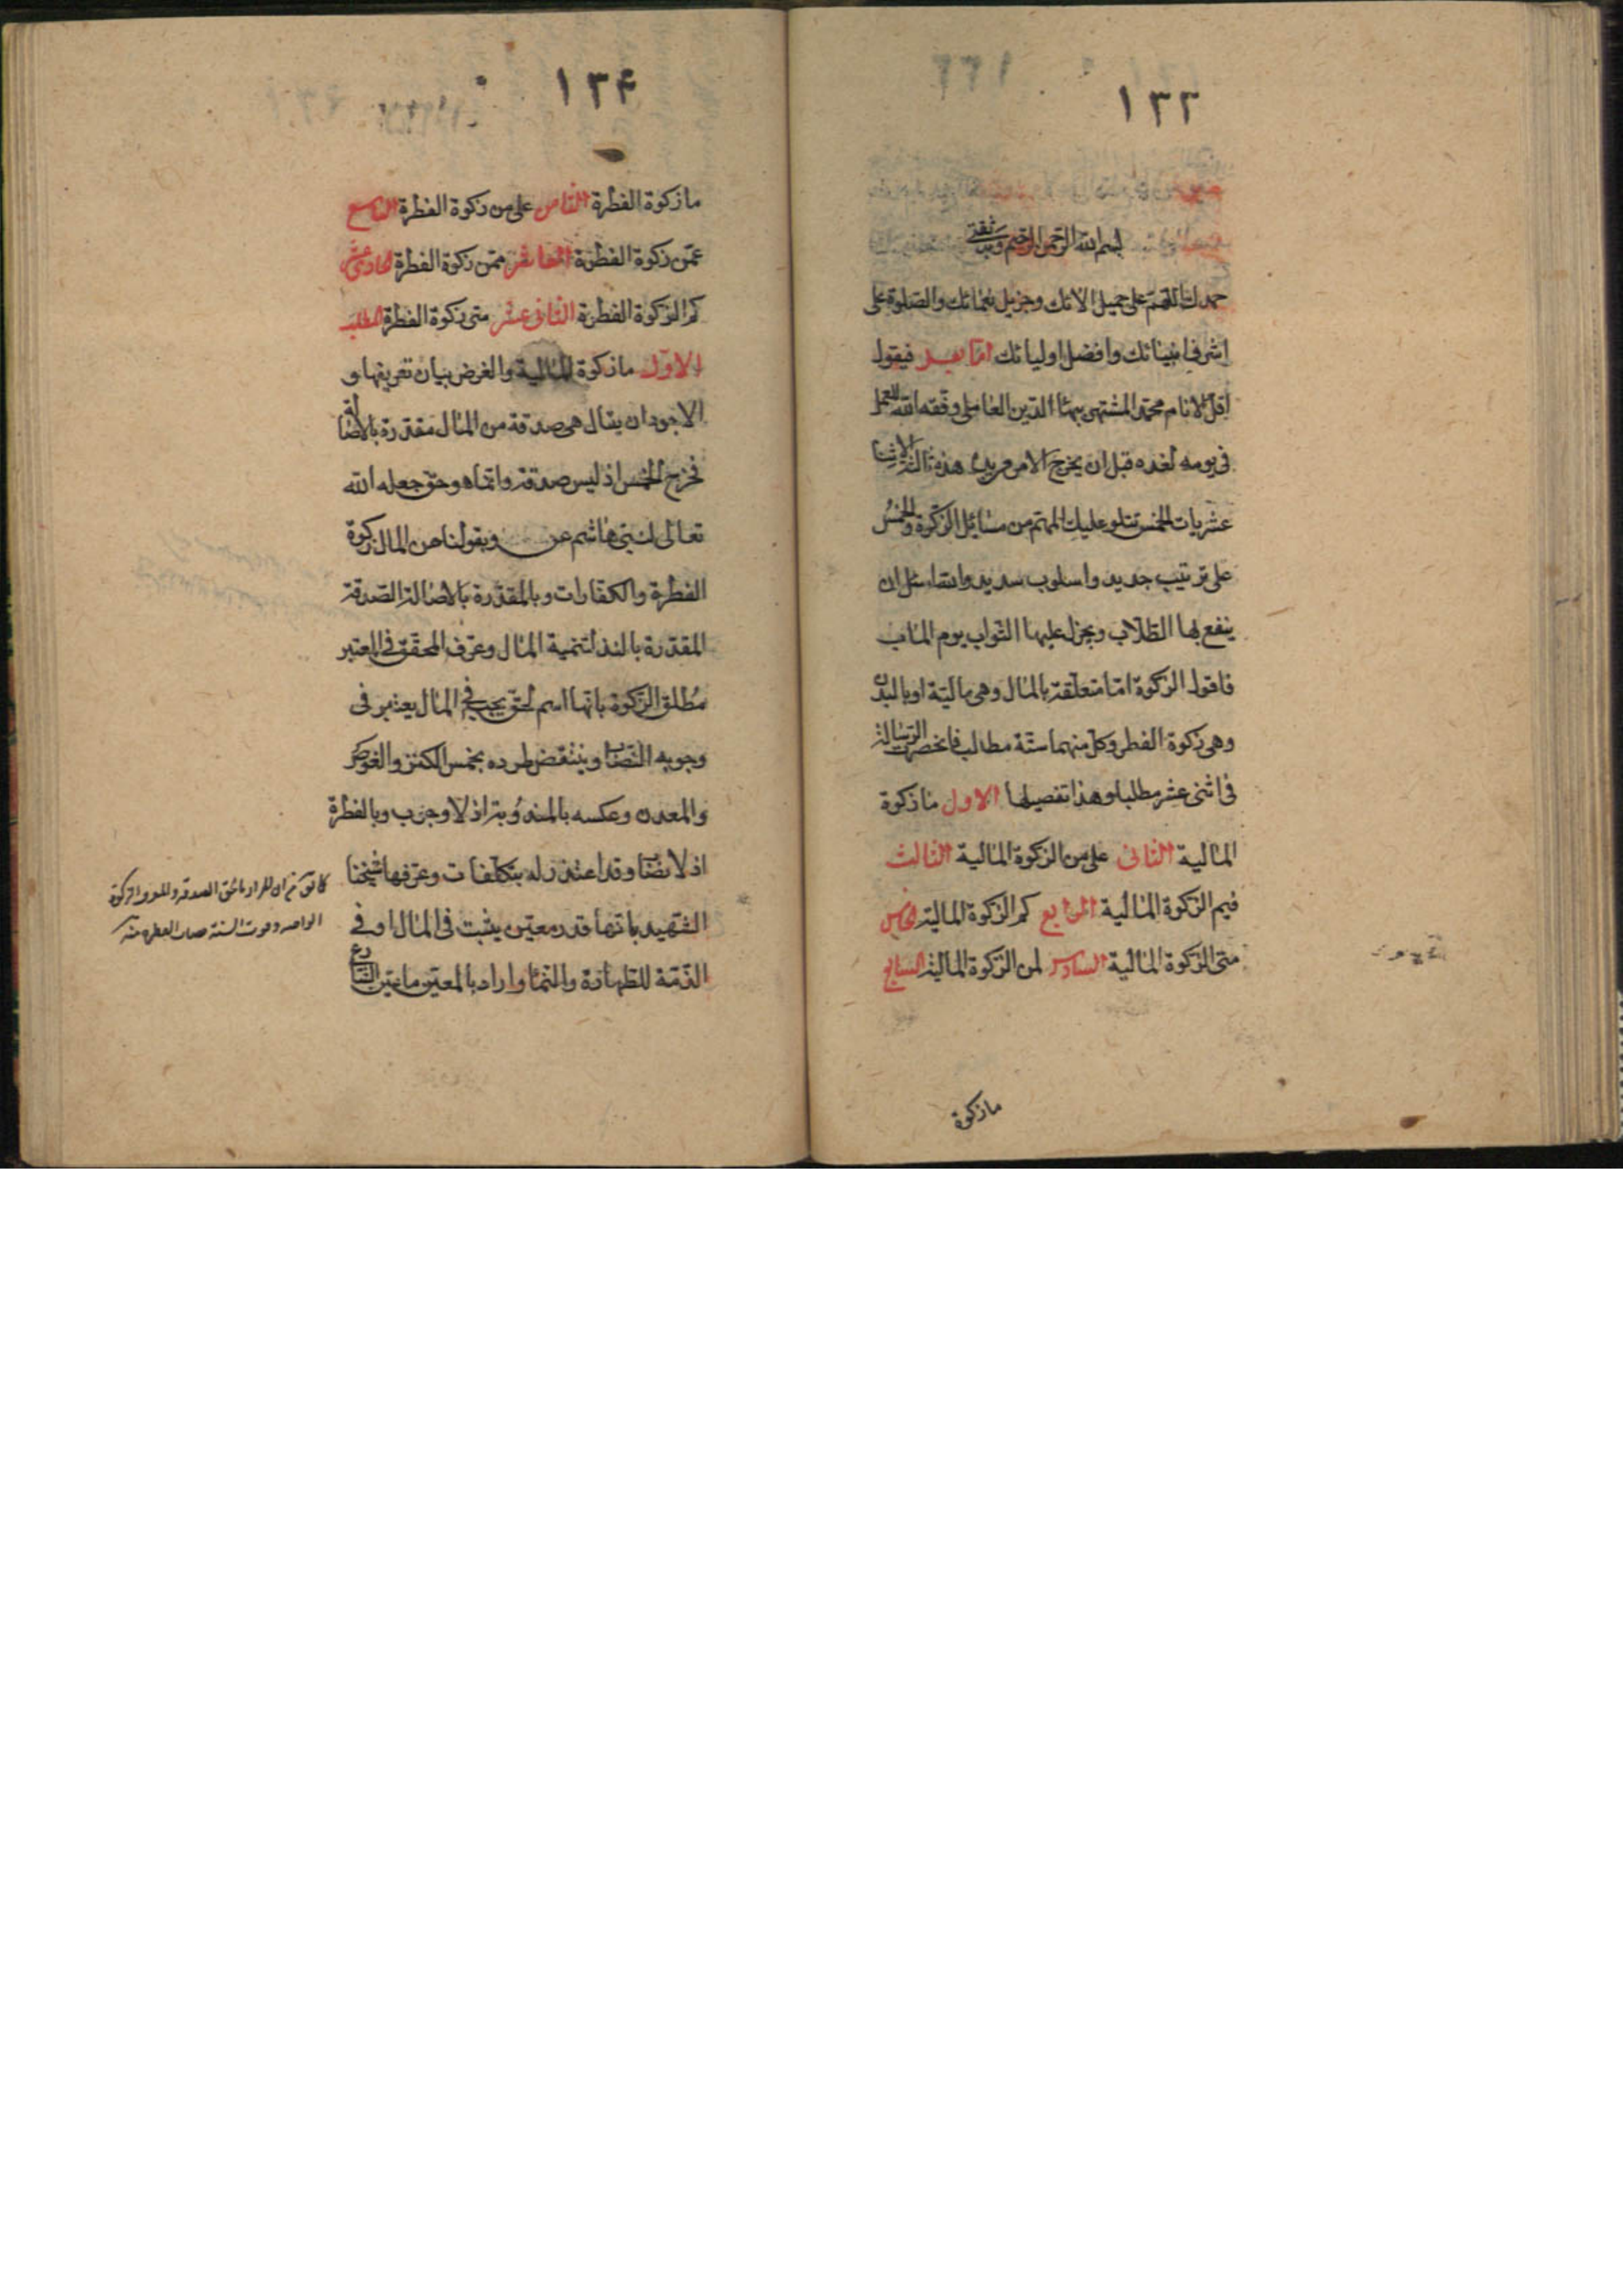 ١٣٣
بسم الله الرحمن الرحيم وبه ثقتي
حمدك اللهم على جميل الائك وجزيل نعمائك والصلوة على
اشرف انبيائك وافضل اوليائك اما بعد فيقول
اقل الانام محمد المشتهر ببهاء الدين العاملي وفقه الله للعمل
في يومه لغده قبل ان يخرج الامر من يده هذه الاثنا
عشريات الخمس تتلو عليك المهم من مسائل الزكوة والخمس
على ترتيب جديد واسلوب سديد والله اسئل ان
ينفع بها الطلاب ويجزل عليها الثواب يوم المٵب
فاقول الزكوة اما متعلقة بالمال وهي مالية او بالبدن
وهي زكوة الفطر وكل منهما ستة مطالب فانحصرت الرسالة
في اثنى عشر مطلبا وهذا تفصيلها الاول ما زكوة
المالية الثانى على من الزكوة المالية الثالث
فيم الزكوة المالية الرابع كم الزكوة المالية الخامس
متى الزكوة المالية السادس لمن الزكوة المالية السابع
ما زكوة
١٣۴
ما زكوة الفطرة الثامن على من زكوة الفطرة التاسع
عمن زكوة الفطرة العاشر ممن زكوة الفطرة الحادى عشر
كم الزكوة الفطرة الثانى عشر متى زكوة الفطرة المطلب
الاول ما زكوة المالية والغرض بيان تعريفها و
الاجود ان يقال هى صدقة من المال مقدرة بالاصالة
فخرج الخمس اذ ليس صدقة وانما هو حق جعله الله
تعالى لبنى هاشم عن وبقولنا من المال زكوة
الفطرة والكفارات وبالمقدرة بالاصالة الصدقة
المقدرة بالنذر لتنمية المال وعرف المحقق في المعتبر
مطلق الزكوة بانها اسم لحق يجب في المال يعتبر فى
وجوبه النصاب وينتقض طرده بخمس الكنز والغوص
والمعدن وعكسه بالمندوبة اذ لا وجوب وبالفطرة
اذ لا نصاب وقد اعتذر له بتكلفات وعرفها شيخنا
الشهيد بانها قدر معين يثبت فى المال او في
الذمة للطهارة والنماء واراد بالمعين ما عين الشارع
ان المراد بالحق الصدقة